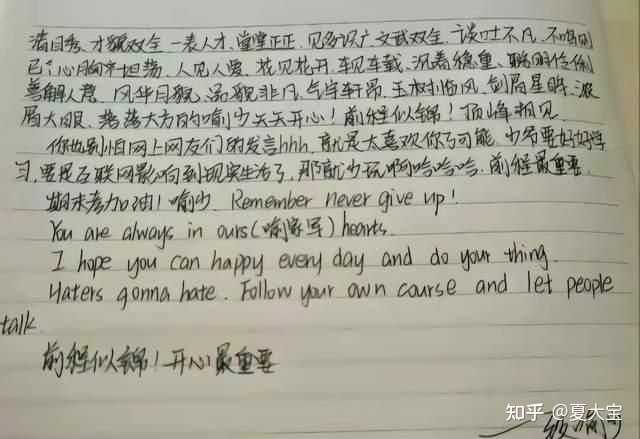 清目秀、才貌双全、一表人才、堂堂正正、见多识广、文武双全、谈吐不凡、不鸣则
已、心胸宽坦荡、人见人爱、花见花开、车见车载、沉着稳重、聪明伶俐
善解人意、风华月貌、品貌非凡、气宇轩昂、玉树临风、剑眉星眸、浓
眉大眼、落落大方的喻少天天开心！前程似锦！顶峰相见
你也别怕网上网友们的发言hhh, 就是太喜欢你了可能, 少爷要好好学
习, 要是互联网影响到现实生活了, 那就少玩啊哈哈哈, 前程最重要,
期末考加油！喻少. Remember never give up!
You are always in ours(喻家军) hearts.
I hope you can happy every day and do your thing.
Haters gonna hate. Follow your own course and let people
talk.
前程似锦！开心最重要
知乎 @夏大宝